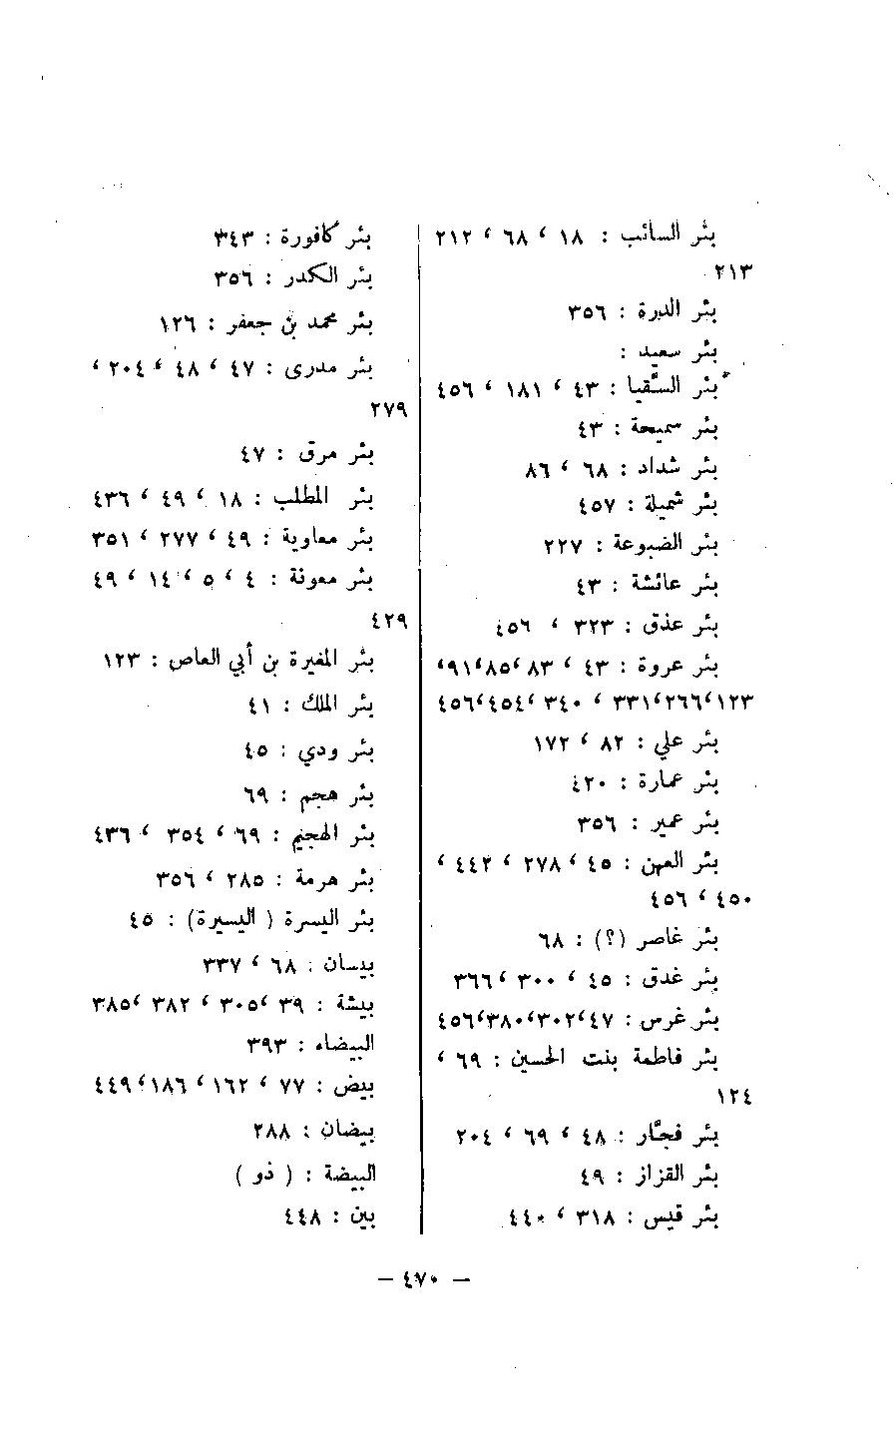 بئر السائب : ١٨ ، ٦٨ ، ٢١٢
٢١٣
بئر الدرة : ٣٥٦
بئر سعيد :
بئر السُّقيا : ٤٣ ، ١٨١ ، ٤٥٦
بئر سميحة : ٤٣
بئر شداد : ٦٨ ، ٨٦
بئر شميلة : ٤٥٧
بئر الضبوعة : ٢٢٧
بئر عائشة : ٤٣
بئر عذق : ٣٢٣ ، ٤٥٦
بئر عروة : ٤٣ ، ٨٣ ،٨٥،٩١،
١٢٣،٢٦٦،٣٣١ ، ٣٤٠ ،٤٥٤،٤٥٦
بئر علي : ٨٢ ، ١٧٢
بئر عمارة : ٤٢٠
بئر عمير : ٣٥٦
بئر العهن : ٤٥ ، ٢٧٨ ، ٤٤٢ ،
٤٥٠ ، ٤٥٦
بئر غاصر (؟) : ٦٨
بئر غدق : ٤٥ ، ٣٠٠ ،٣٦٦
بئر غرس : ٤٧،٣٠٢،٣٨٠،٤٥٦
بئر فاطمة بنت الحسين : ٦٩ ،
١٢٤
بئر فجَّار : ٤٨ ، ٦٩ ، ٢٠٤
بئر القزاز : ٤٩
بئر قيس : ٣١٨ ، ٤٤٠
بئر كافورة : ٣٤٣
بئر الكدر : ٣٥٦
بئر محمد بن جعفر : ١٢٦
بئر مدرى : ٤٧ ، ٤٨ ، ٢٠٤ ،
٢٧٩
بئر مرق : ٤٧
بئر المطلب : ١٨ ، ٤٩ ، ٤٣٦
بئر معاوية : ٤٩ ، ٢٧٧ ، ٣٥١
بئر معونة : ٤ ، ٥ ، ١٤ ، ٤٩
٤٢٩
بئر المغيرة بن أبي العاص : ١٢٣
بئر الملك : ٤١
بئر ودي : ٤٥
بئر هجم : ٦٩
بئر الهجيم : ٦٩ ، ٣٥٤ ، ٤٣٦
بئر هرمة : ٢٨٥ ، ٣٥٦
بئر اليسرة ( اليسيرة) : ٤٥
بيسان : ٦٨ ، ٣٣٧
بيشة : ٣٩ ،٣٠٥ ، ٣٨٢ ،٣٨٥
البيضاء : ٣٩٣
بيض : ٧٧ ، ١٦٢ ، ١٨٦،٤٤٩
بيضان : ٢٨٨
البيضة : ( ذو )
بين : ٤٤٨
— ٤٧٠ —